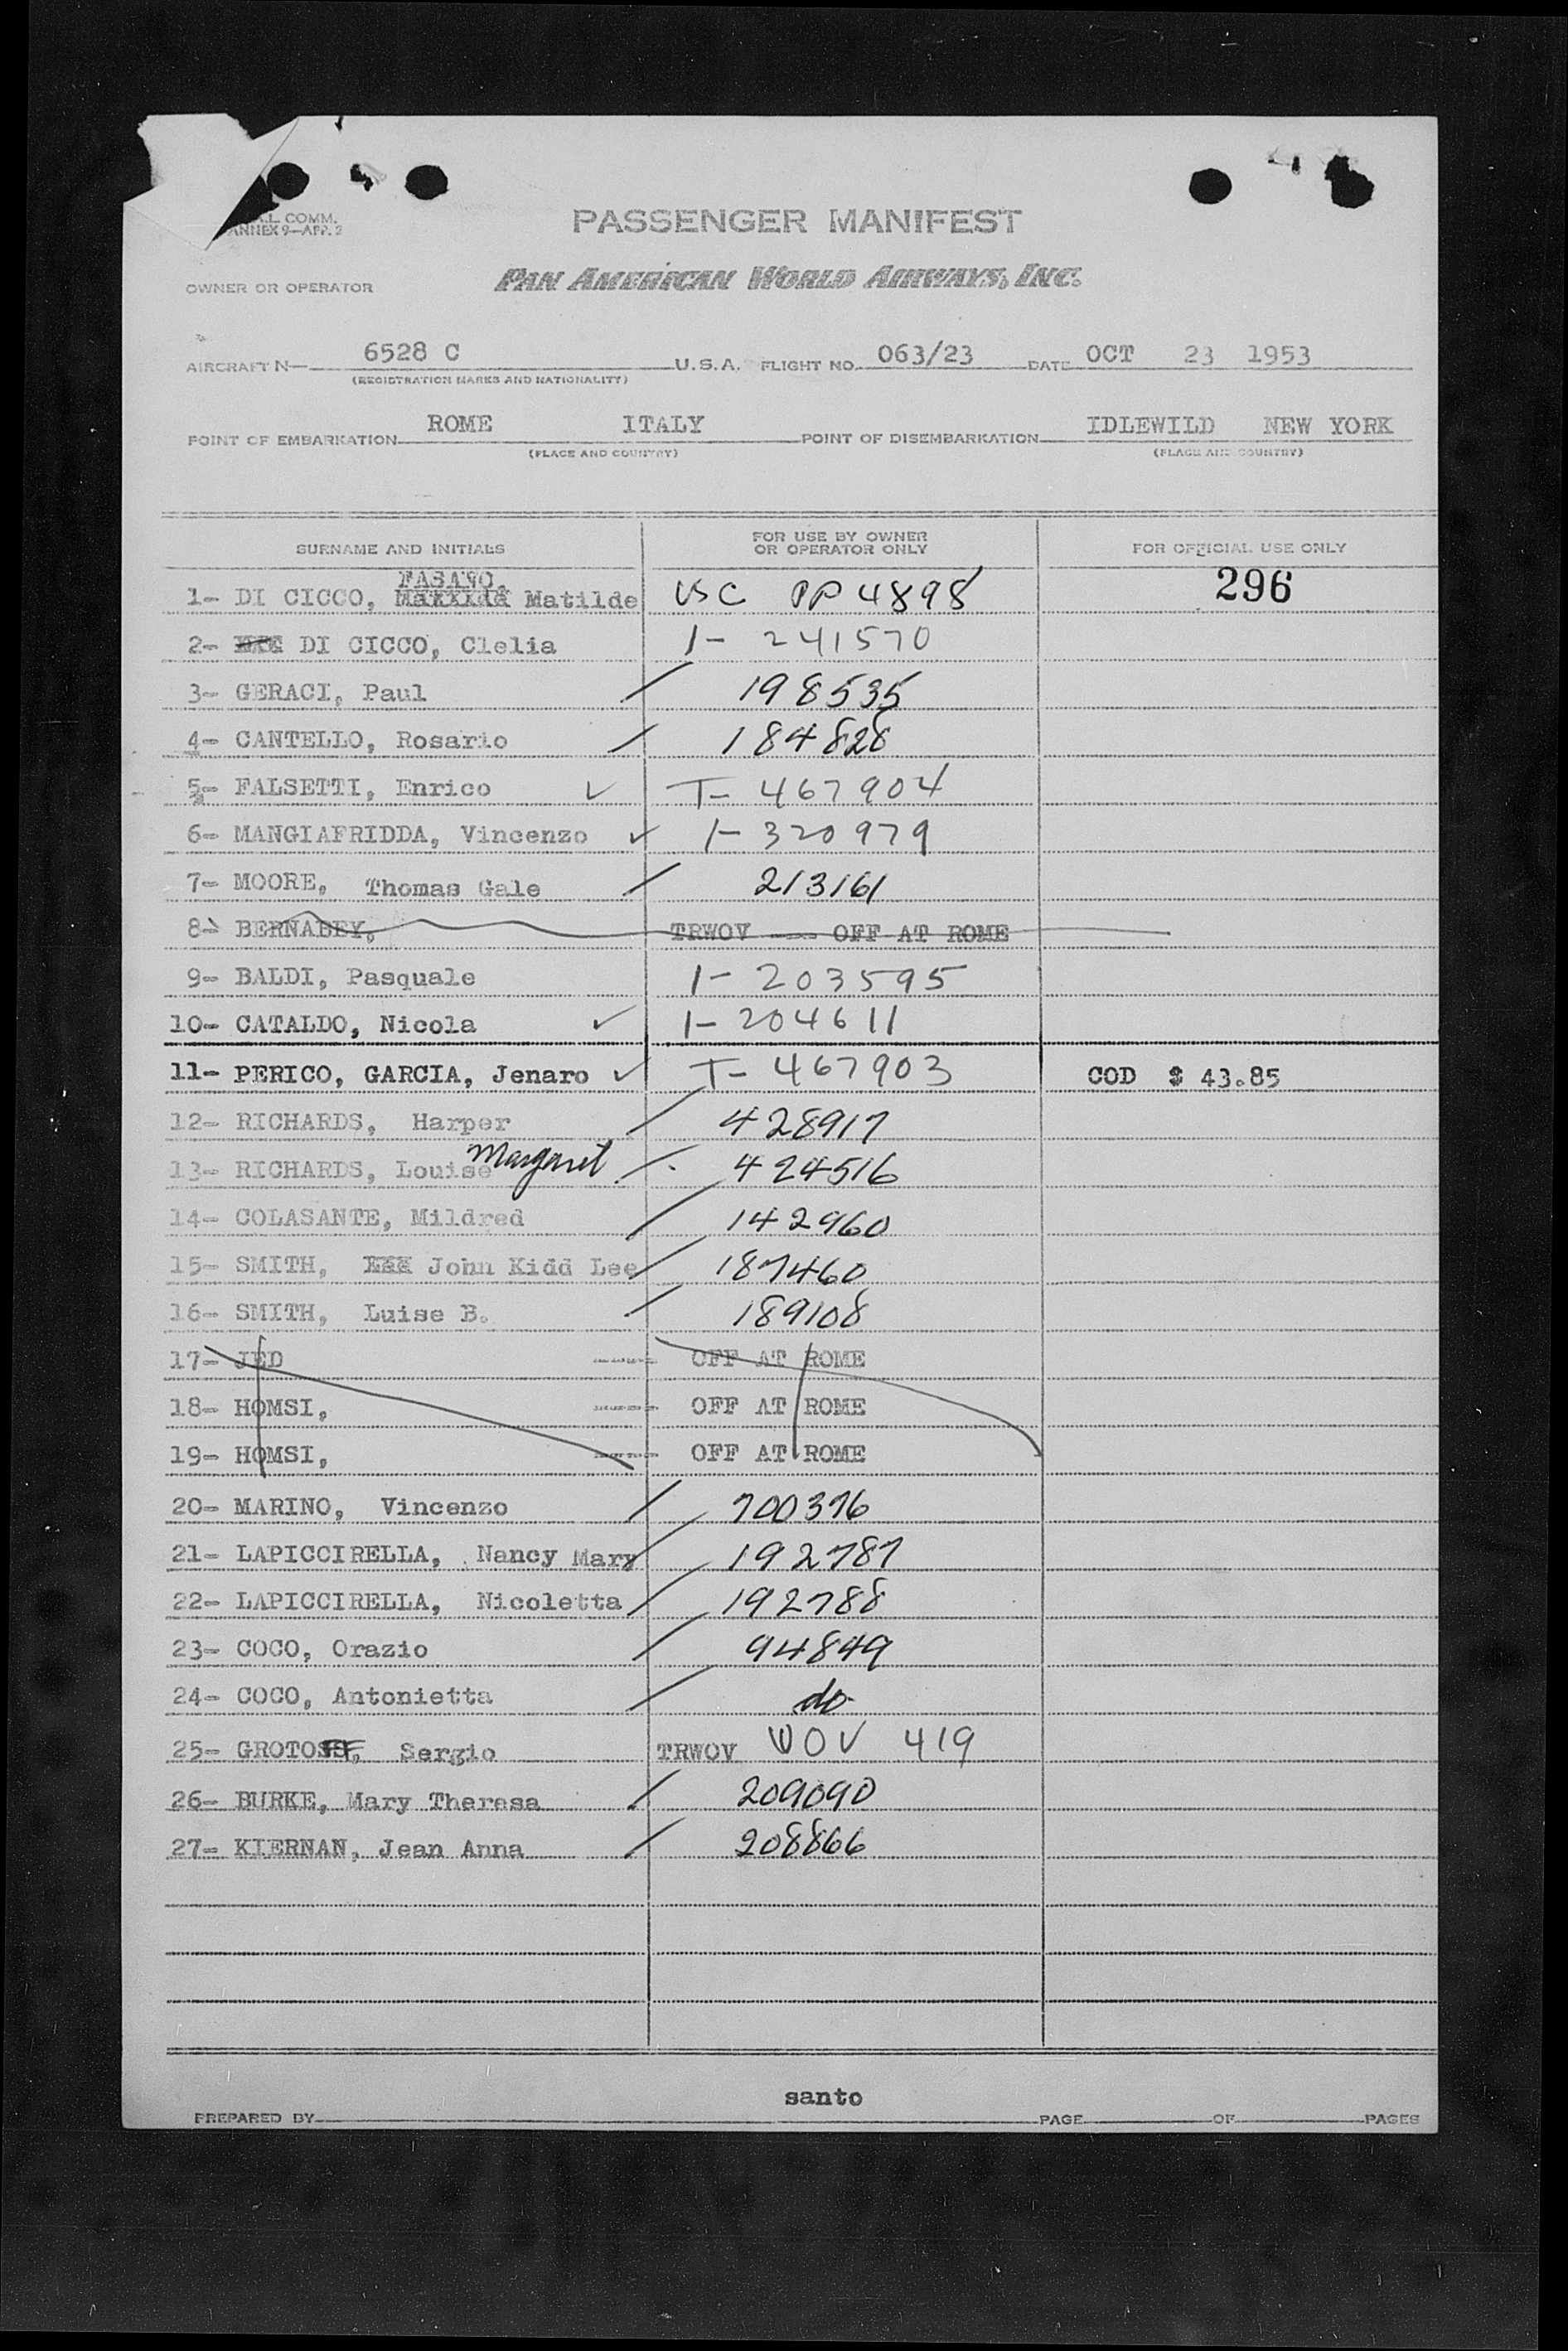 A.L. COMM.
ANNEX 9—APP. 2
PASSENGER MANIFEST
OWNER OR OPERATOR PAN AMERICAN WORLD AIRWAYS, INC.
AIRCRAFT N— 6528 C U.S.A. FLIGHT NO. 063/23 DATE OCT 23 1953
(REGISTRATION MARKS AND NATIONALITY)
POINT OF EMBARKATION ROME ITALY POINT OF DISEMBARKATION IDLEWILD NEW YORK
(PLACE AND COUNTRY) (PLACE AND COUNTRY)
SURNAME AND INITIALS FOR USE BY OWNER OR OPERATOR ONLY FOR OFFICIAL USE ONLY
FASANO,
1- DI CICCO, Matilde USC PP 4898 296
2- DI CICCO, Clelia 1- 241570
3- GERACI, Paul / 198535
4- CANTELLO, Rosario / 184828
5- FALSETTI, Enrico ✓ T- 467904
6- MANGIAFRIDDA, Vincenzo ✓ 1- 320979
7- MOORE, Thomas Gale / 213161
8- BERNABEY, TRWOV --- OFF AT ROME
9- BALDI, Pasquale 1- 203595
10- CATALDO, Nicola ✓ 1- 204611
11- PERICO, GARCIA, Jenaro ✓ T- 467903 COD $ 43.85
12- RICHARDS, Harper / 428917
13- RICHARDS, Louise Margaret / 424516
14- COLASANTE, Mildred / 142960
15- SMITH, John Kidd Lee / 187460
16- SMITH, Luise B. / 189108
17- JED ---- OFF AT ROME
18- HOMSI, ---- OFF AT ROME
19- HOMSI, ---- OFF AT ROME
20- MARINO, Vincenzo / 700376
21- LAPICCIRELLA, Nancy Mary / 192787
22- LAPICCIRELLA, Nicoletta / 192788
23- COCO, Orazio / 94849
24- COCO, Antonietta / do
25- GROTOFF, Sergio TRWOV WOV 419
26- BURKE, Mary Theresa / 209090
27- KIERNAN, Jean Anna / 208866
santo
PREPARED BY PAGE OF PAGES